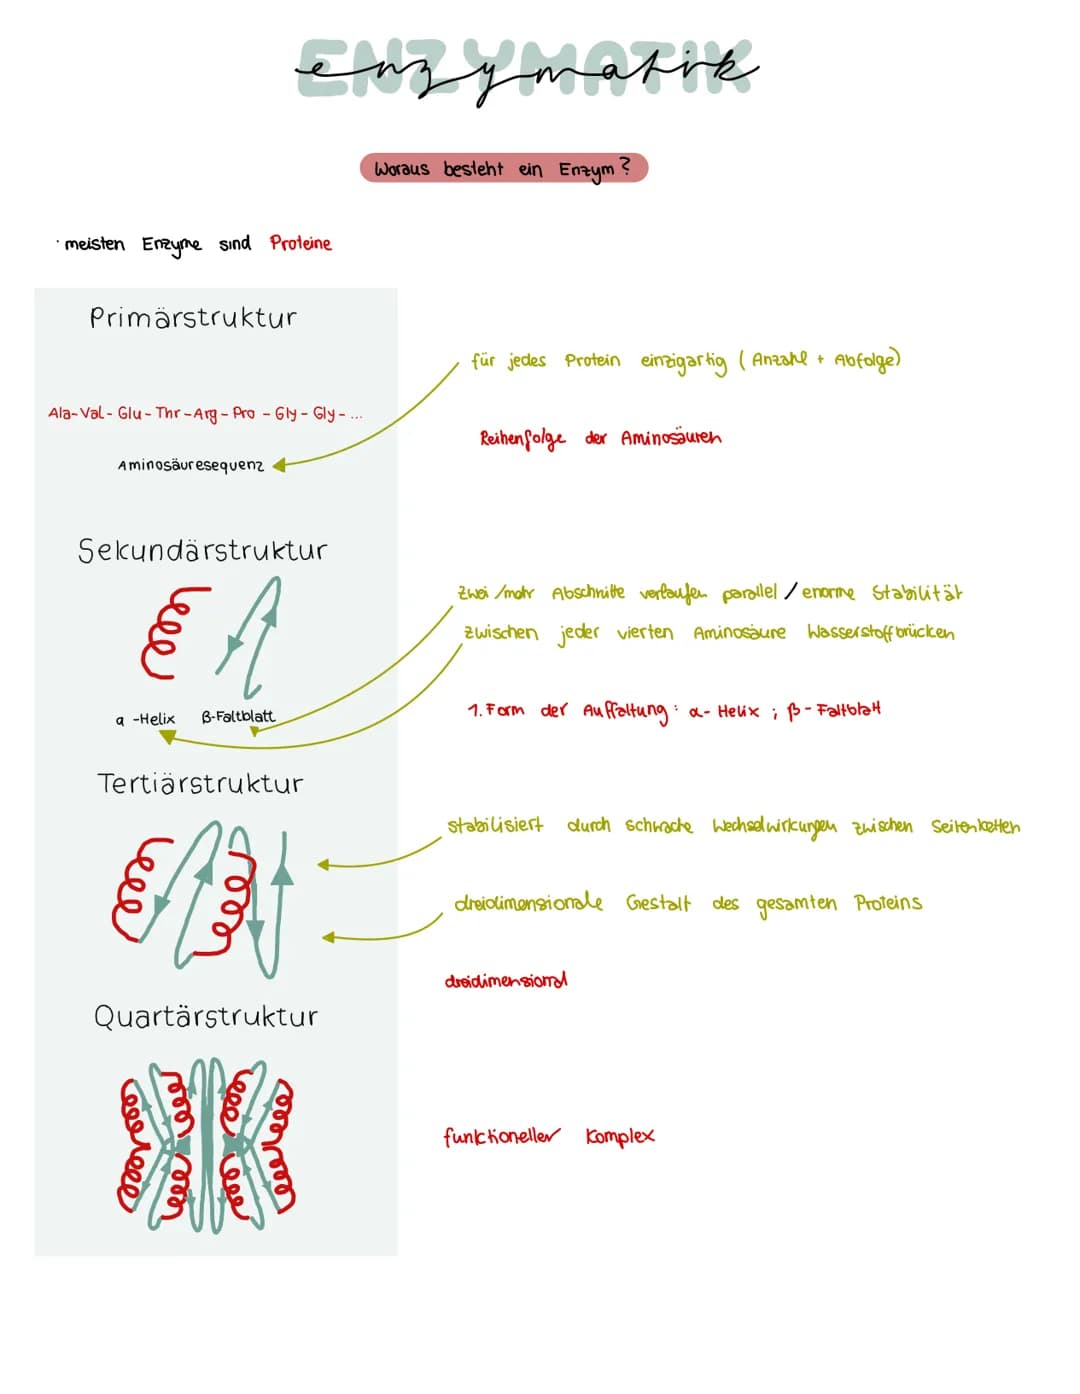 ENZYMATIK
enzymatik
Woraus besteht ein Enzym?
· meisten Enzyme sind Proteine
Primärstruktur
für jedes Protein einzigartig (Anzahl + Abfolge)
Ala-Val-Glu-Thr-Arg-Pro-Gly-Gly-...
Reihenfolge der Aminosäuren
Aminosäuresequenz
Sekundärstruktur
zwei/mehr Abschnitte verlaufen parallel / enorme Stabilität
zwischen jeder vierten Aminosäure Wasserstoffbrücken
α-Helix β-Faltblatt
1. Form der Auffaltung: α-Helix ; β-Faltblatt
Tertiärstruktur
stabilisiert durch schwache Wechselwirkungen zwischen Seitenketten
dreidimensionale Gestalt des gesamten Proteins
dreidimensional
Quartärstruktur
funktioneller Komplex